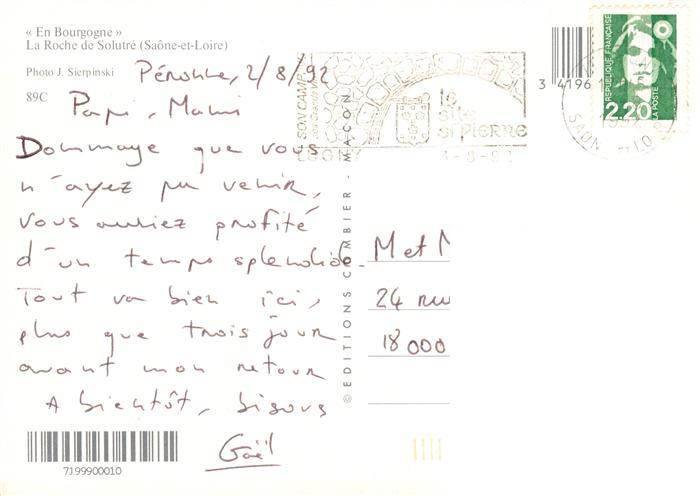 « En Bourgogne »
La Roche de Solutré (Saône-et-Loire)
Photo J. Sierpinski
89C
Péronne, 2/8/92
Papi, Mami
Dommage que vous
n'ayez pu venir,
vous auriez profité
d'un temps splendide.
Tout va bien ici,
plus que trois jour
avant mon retour
A bientôt, bisous
Gaël
7199900010
© EDITIONS COMBIER - MACON
SON CAMP
LUGNY
le
site
St PIERRE
3-8-92
3 4196
REPUBLIQUE FRANÇAISE
2,20
LA POSTE
1992
M et M
24 rue
18000